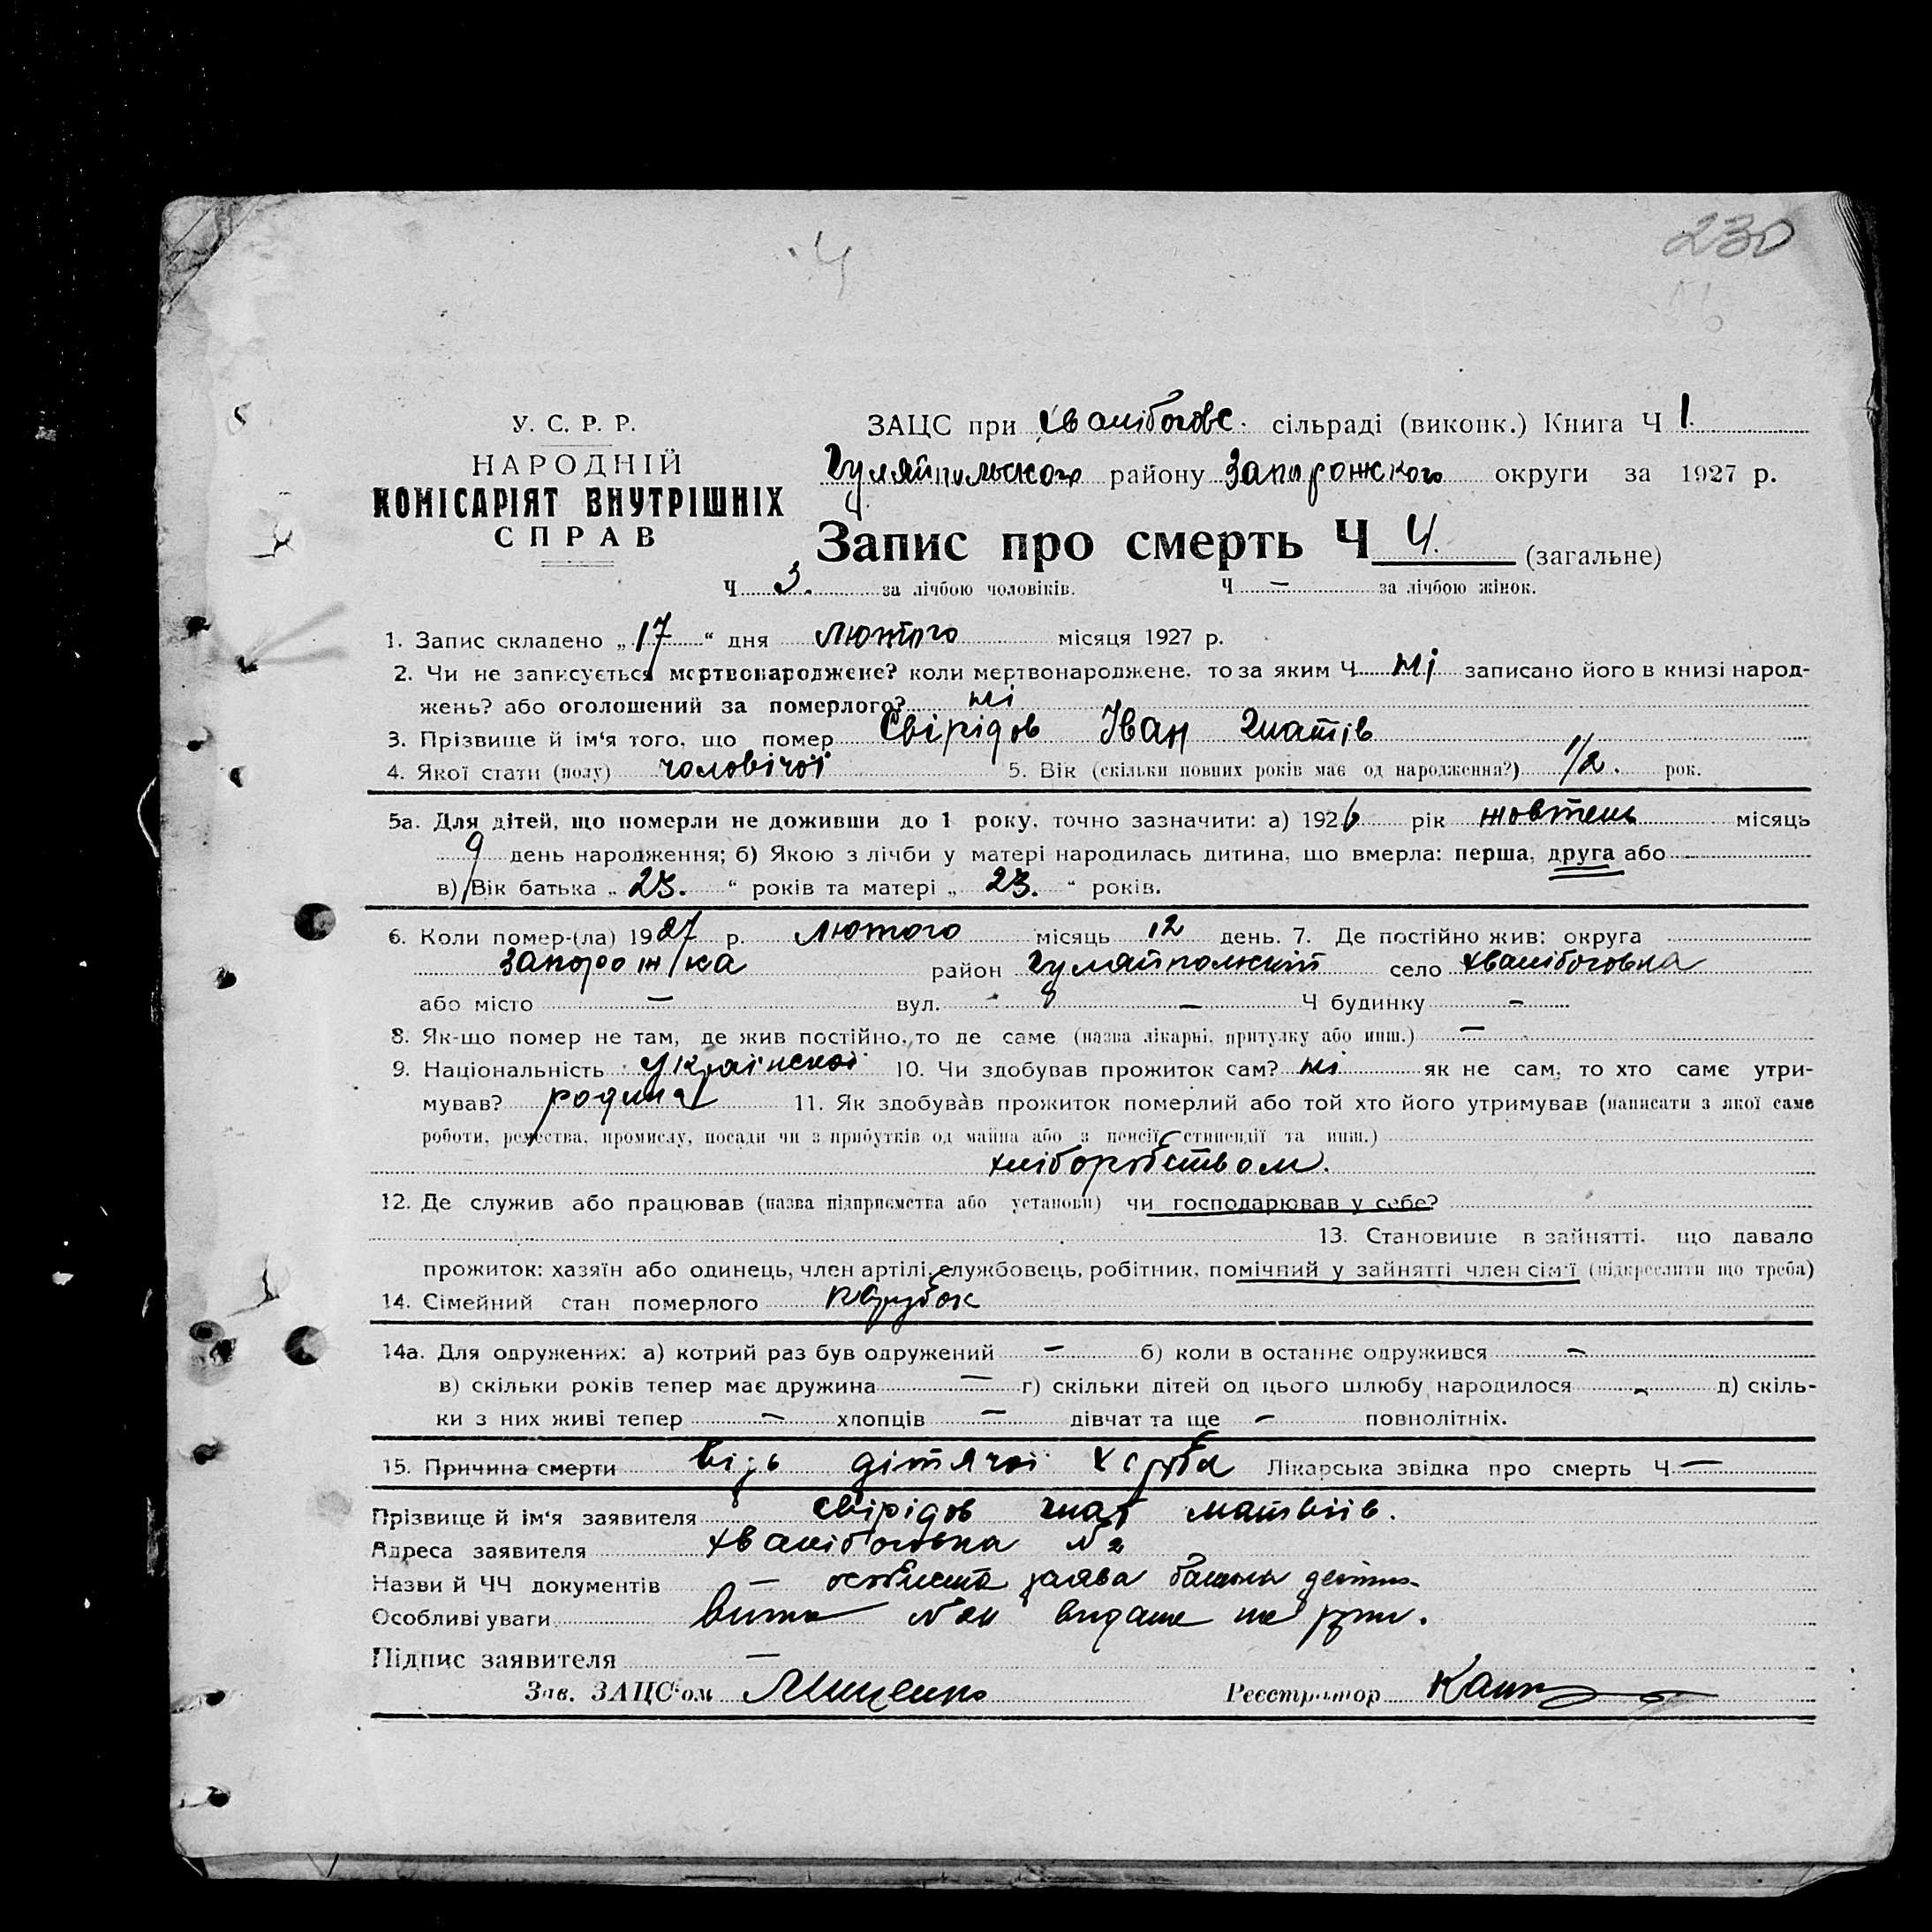 4
230
У. С. Р. Р.
НАРОДНІЙ
КОМІСАРІЯТ ВНУТРІШНІХ
СПРАВ
ЗАЦС при Хвалібогове. сільраді (виконк.) Книга Ч 1.
Гуляйпильського району Запорожского округи за 1927 р.
Запис про смерть Ч 4. (загальне)
Ч 3. за лічбою чоловіків. Ч – за лічбою жінок.
1. Запис складено „17“ дня лютого місяця 1927 р.
2. Чи не записується мертвонароджене? коли мертвонароджене, то за яким Ч ні записано його в книзі народ-
жень? або оголошений за померлого? ні
3. Прізвище й ім'я того, що помер Свірідов Іван Гнатів
4. Якої стати (полу) чоловічої 5. Вік (скільки повних років має од народження?) 1/2. рок.
5а. Для дітей, що померли не доживши до 1 року, точно зазначити: а) 1926 рік жовтень місяць
9 день народження; б) Якою з лічби у матері народилась дитина, що вмерла: перша, друга або
в) Вік батька „23.“ років та матері „23.“ років.
6. Коли помер-(ла) 1927 р. лютого місяць 12 день. 7. Де постійно жив: округа
Запорожка район Гуляйпольский село Хвалібоговка
або місто – вул. – Ч будинку –
8. Як-що помер не там, де жив постійно, то де саме (назва лікарні, притулку або инш.) –
9. Національність Українскої 10. Чи здобував прожиток сам? ні як не сам, то хто саме утри-
мував? родина 11. Як здобував прожиток померлий або той хто його утримував (написати з якої саме
роботи, ремества, промислу, посади чи з прибутків од майна або з пенсії, стипендії та инш.)
хліборобством.
12. Де служив або працював (назва підприємства або установи) чи господарював у себе?
13. Становище в зайнятті, що давало
прожиток: хазяїн або одинець, член артілі, службовець, робітник, помічний у зайнятті член сім'ї (підкреслити що треба)
14. Сімейний стан померлого парубок
14а. Для одружених: а) котрий раз був одружений – б) коли в останнє одружився –
в) скільки років тепер має дружина – г) скільки дітей од цього шлюбу народилося – д) скіль-
ки з них живі тепер – хлопців – дівчат та ще – повнолітніх.
15. Причина смерти Відь дітячої хороба Лікарська звідка про смерть Ч –
Прізвище й ім'я заявителя Свірідов Гнат Матвіїв.
Адреса заявителя Хвалібоговка № 2
Назви й ЧЧ документів – особиста заява батька
Особливі уваги видане на руки.
Підпис заявителя –
Зав. ЗАЦС'ом Реєстратор